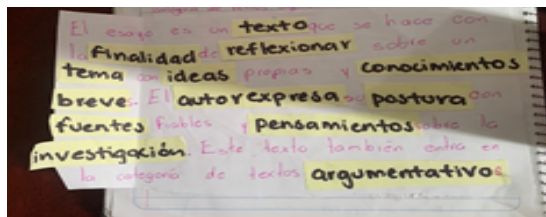 El esayo es un texto que se hace con
la finalidad de reflexionar sobre un
tema con ideas propias y conocimientos
breves. El autor expresa su postura con
fuentes fiables y pensamientos sobre la
investigación. Este texto también entra en
la categoria de textos argumentativos